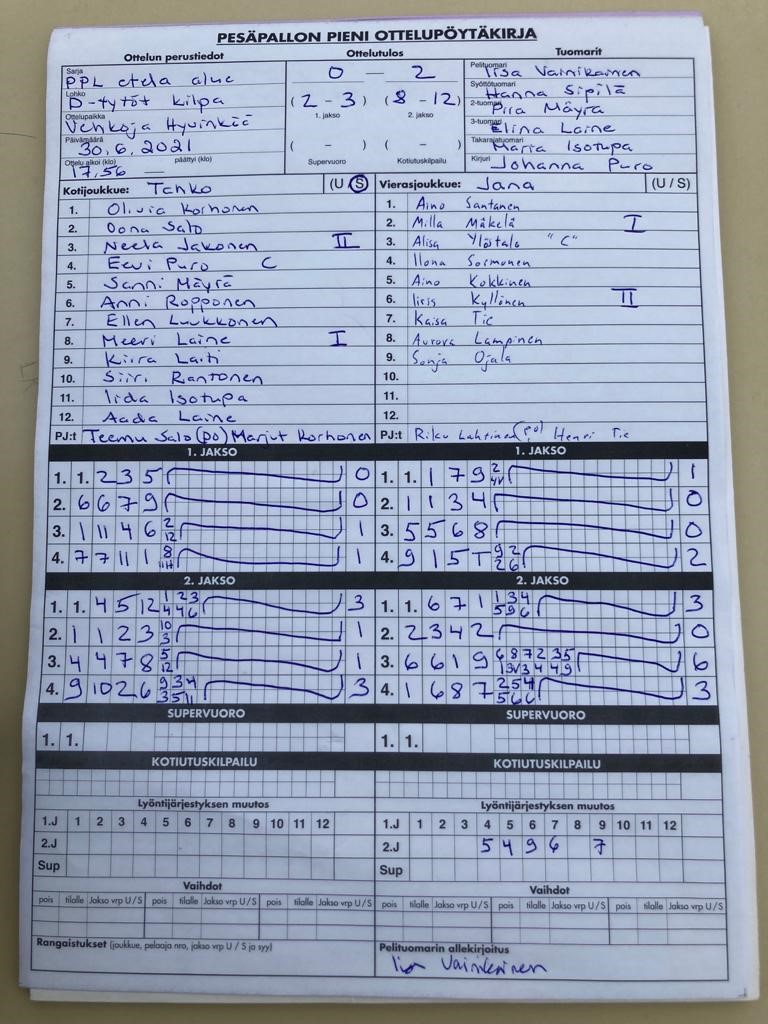 PESÄPALLON PIENI OTTELUPÖYTÄKIRJA
Ottelun perustiedot
Sarja
PPL etelä alue
Lohko
D-tytöt kilpa
Ottelupaikka
Vehkoja Hyvinkää
Päivämäärä
30.6.2021
Ottelu alkoi (klo) päättyi (klo)
17.56 —
Ottelutulos
0 — 2
(2 - 3) (8 - 12)
1. jakso 2. jakso
( - ) ( - )
Supervuoro Kotiutuskilpailu
Tuomarit
Pelituomari
Iisa Vainikainen
Syöttötuomari
Hanna Sipilä
2-tuomari
Piia Mäyrä
3-tuomari
Elina Laine
Takarajatuomari
Maria Isotupa
Kirjuri
Johanna Puro
Kotijoukkue: Tahko (U/S)
1. Olivia Korhonen
2. Oona Salo
3. Neela Jakonen II
4. Eevi Puro C
5. Sanni Mäyrä
6. Anni Ropponen
7. Ellen Luukkonen
8. Meeri Laine I
9. Kiira Laiti
10. Siiri Rantonen
11. Iida Isotupa
12. Aada Laine
PJ:t Teemu Salo (po) Marjut Korhonen
Vierasjoukkue: Jana (U/S)
1. Aino Santanen
2. Milla Mäkelä I
3. Alisa Ylöstalo "C"
4. Ilona Sormunen
5. Aino Kokkinen
6. Iiris Kyllönen II
7. Kaisa Tie
8. Aurora Lampinen
9. Sonja Ojala
10.
11.
12.
PJ:t Riku Lahtinen (po) Henri Tie
1. JAKSO
1. 1. 2 3 5 0
2. 6 6 7 9 0
3. 1 11 4 6 2 12 1
4. 7 7 11 1 8 1
1. JAKSO
1. 1. 1 7 9 2 1
2. 1 1 3 4 0
3. 5 5 6 8 0
4. 9 1 5 T 9 2 2 6 2
2. JAKSO
1. 1. 4 5 12 1 2 3 4 4 6 3
2. 1 1 2 3 10 3 1
3. 4 4 7 8 5 12 1
4. 9 10 2 6 9 3 4 3 5 11 3
2. JAKSO
1. 1. 6 7 1 1 3 4 5 9 6 3
2. 2 3 4 2 0
3. 6 6 1 9 6 8 7 2 3 5 6
4. 1 6 8 7 2 5 4 5 6 6 3
SUPERVUORO
1. 1.
SUPERVUORO
1. 1.
KOTIUTUSKILPAILU
KOTIUTUSKILPAILU
Lyöntijärjestyksen muutos
1.J 1 2 3 4 5 6 7 8 9 10 11 12
2.J
Sup
Lyöntijärjestyksen muutos
1.J 1 2 3 4 5 6 7 8 9 10 11 12
2.J 5 4 9 6 7
Sup
Vaihdot
pois tilalle Jakso vrp U/S pois tilalle Jakso vrp U/S pois tilalle Jakso vrp U/S
Vaihdot
pois tilalle Jakso vrp U/S pois tilalle Jakso vrp U/S pois tilalle Jakso vrp U/S
Rangaistukset (joukkue, pelaaja nro, jakso vrp U / S ja syy)
Pelituomarin allekirjoitus
Iisa Vainikainen